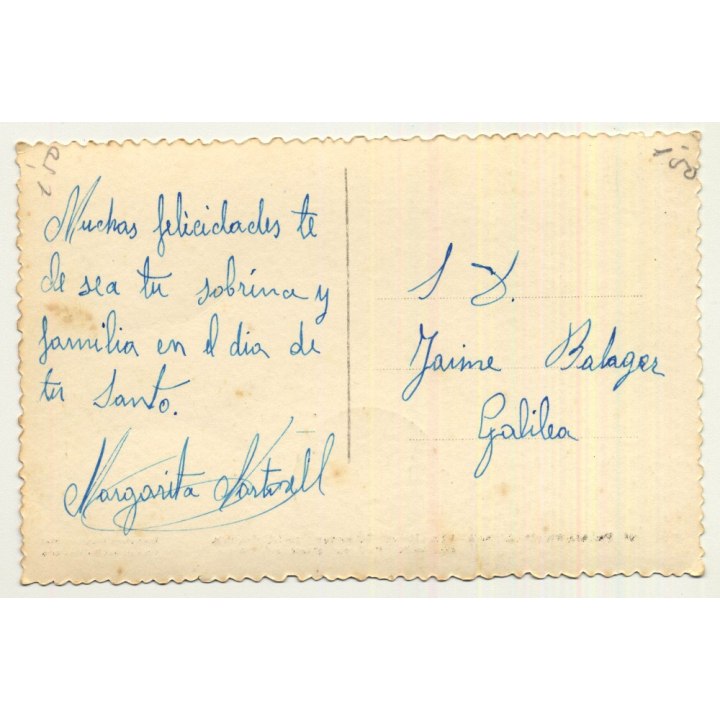 1'50
1'50
Muchas felicidades te
de sea tu sobrina y
familia en el dia de
tu Santo.
Margarita Martorell
S D.
Jaime Balager
Galilea